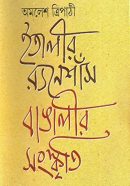 অমলেশ ত্রিপাঠী
ইতালীর
র‍্যনেশাঁস
বাঙালীর
সংস্কৃতি